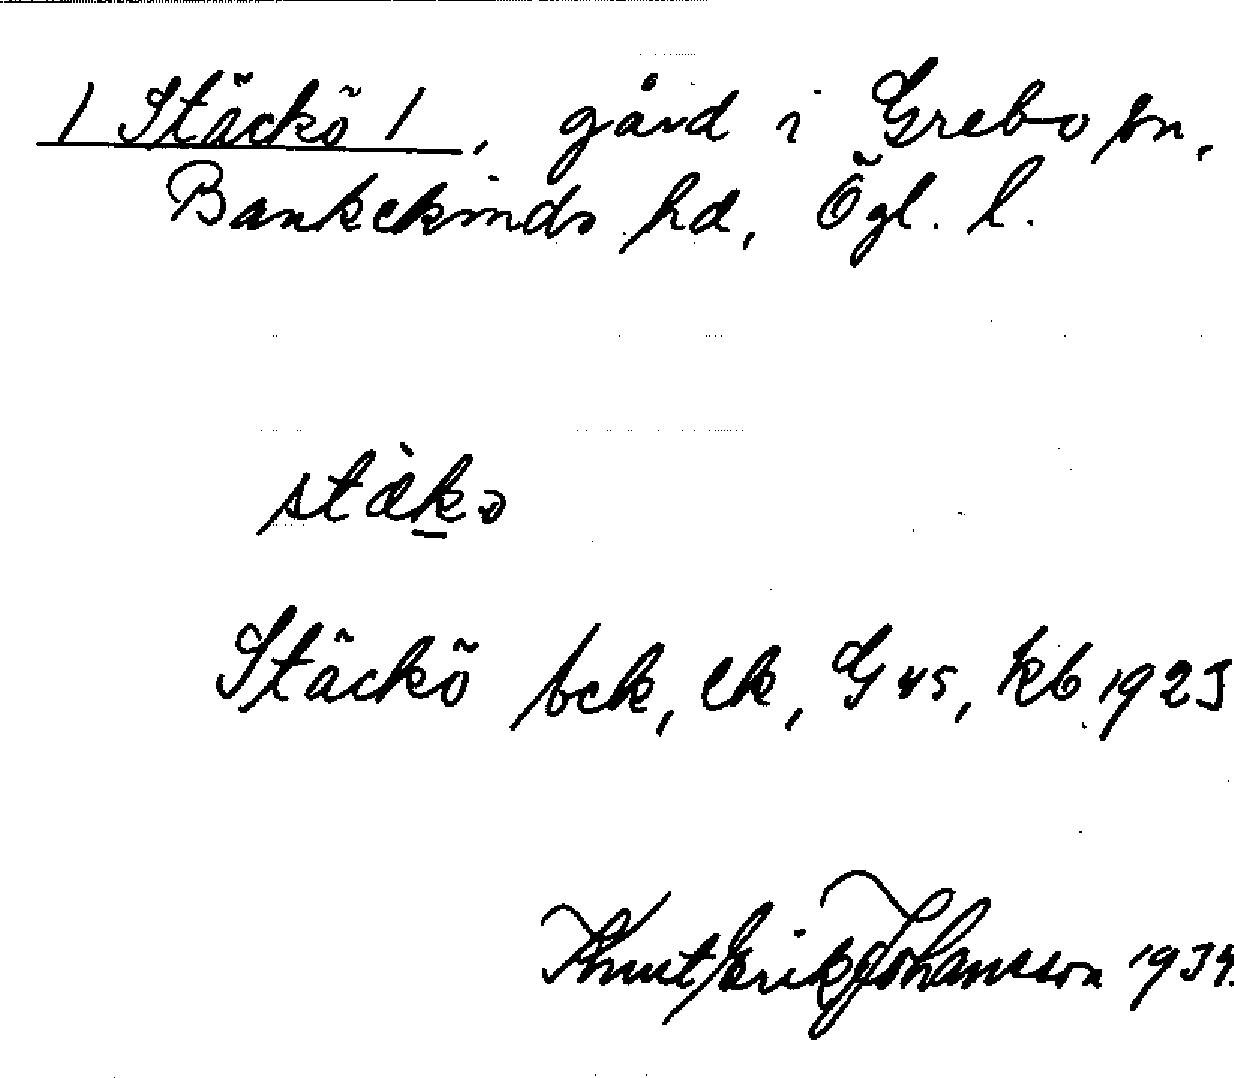 / Stäckö /, gård i Grebo sn,
Bankekinds hd, Ögl. l.
stä̀k̲ö
Stäckö bck, ek, G 45, kb 1923
Knut Erik Johansson 1934.